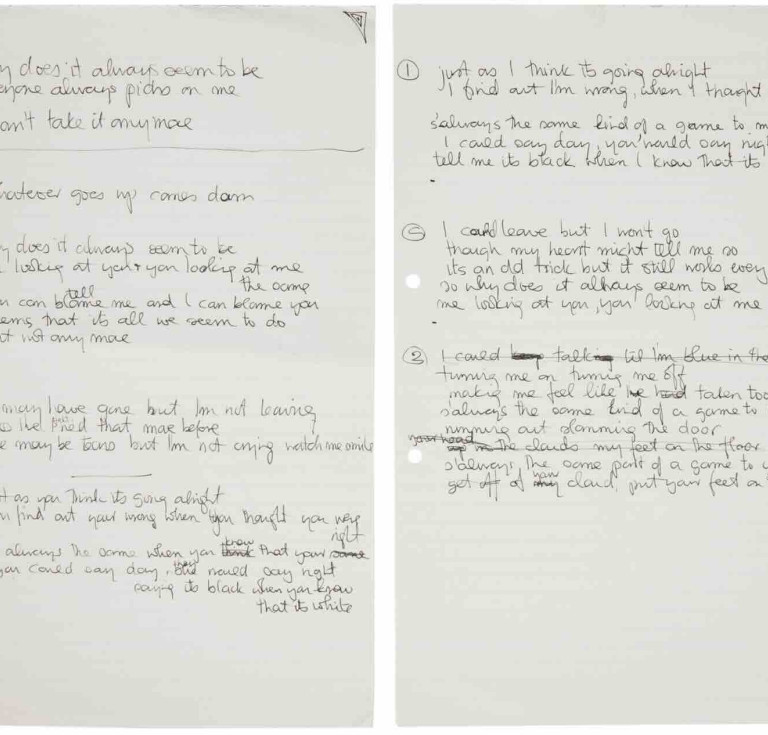 does it always seem to be
always picks on me
take it anymore
goes up comes down
does it always seem to be
looking at you + you looking at me
the same
can blame tell me and I can blame you
that its all we seem to do
not anymore
may have gone but Im not leaving
that more before
may be tears but Im not crying watch me smile
as you think its going alright
find out your wrong when you thought you were
right
always the same when you think know that your same
you could say day, they would say night
saying its black when you know
that its white
① just as I think its going alright
I find out I'm wrong, when I thought
s'always the same kind of a game to
I could say day, you would say
tell me its black when I know that its
I could leave but I wont go
though my heart might tell me so
its an old trick but it still works
so why does it always seem to be
me looking at you, you looking at me
② I could talking til I'm blue in the
turning me on turning me off
making me feel like Ive had taken
s'always the same kind of a game to
running out slamming the door
your head
in the clouds my feet on the floor
s'always the same part of a game to
get off of my your cloud, put your feet on